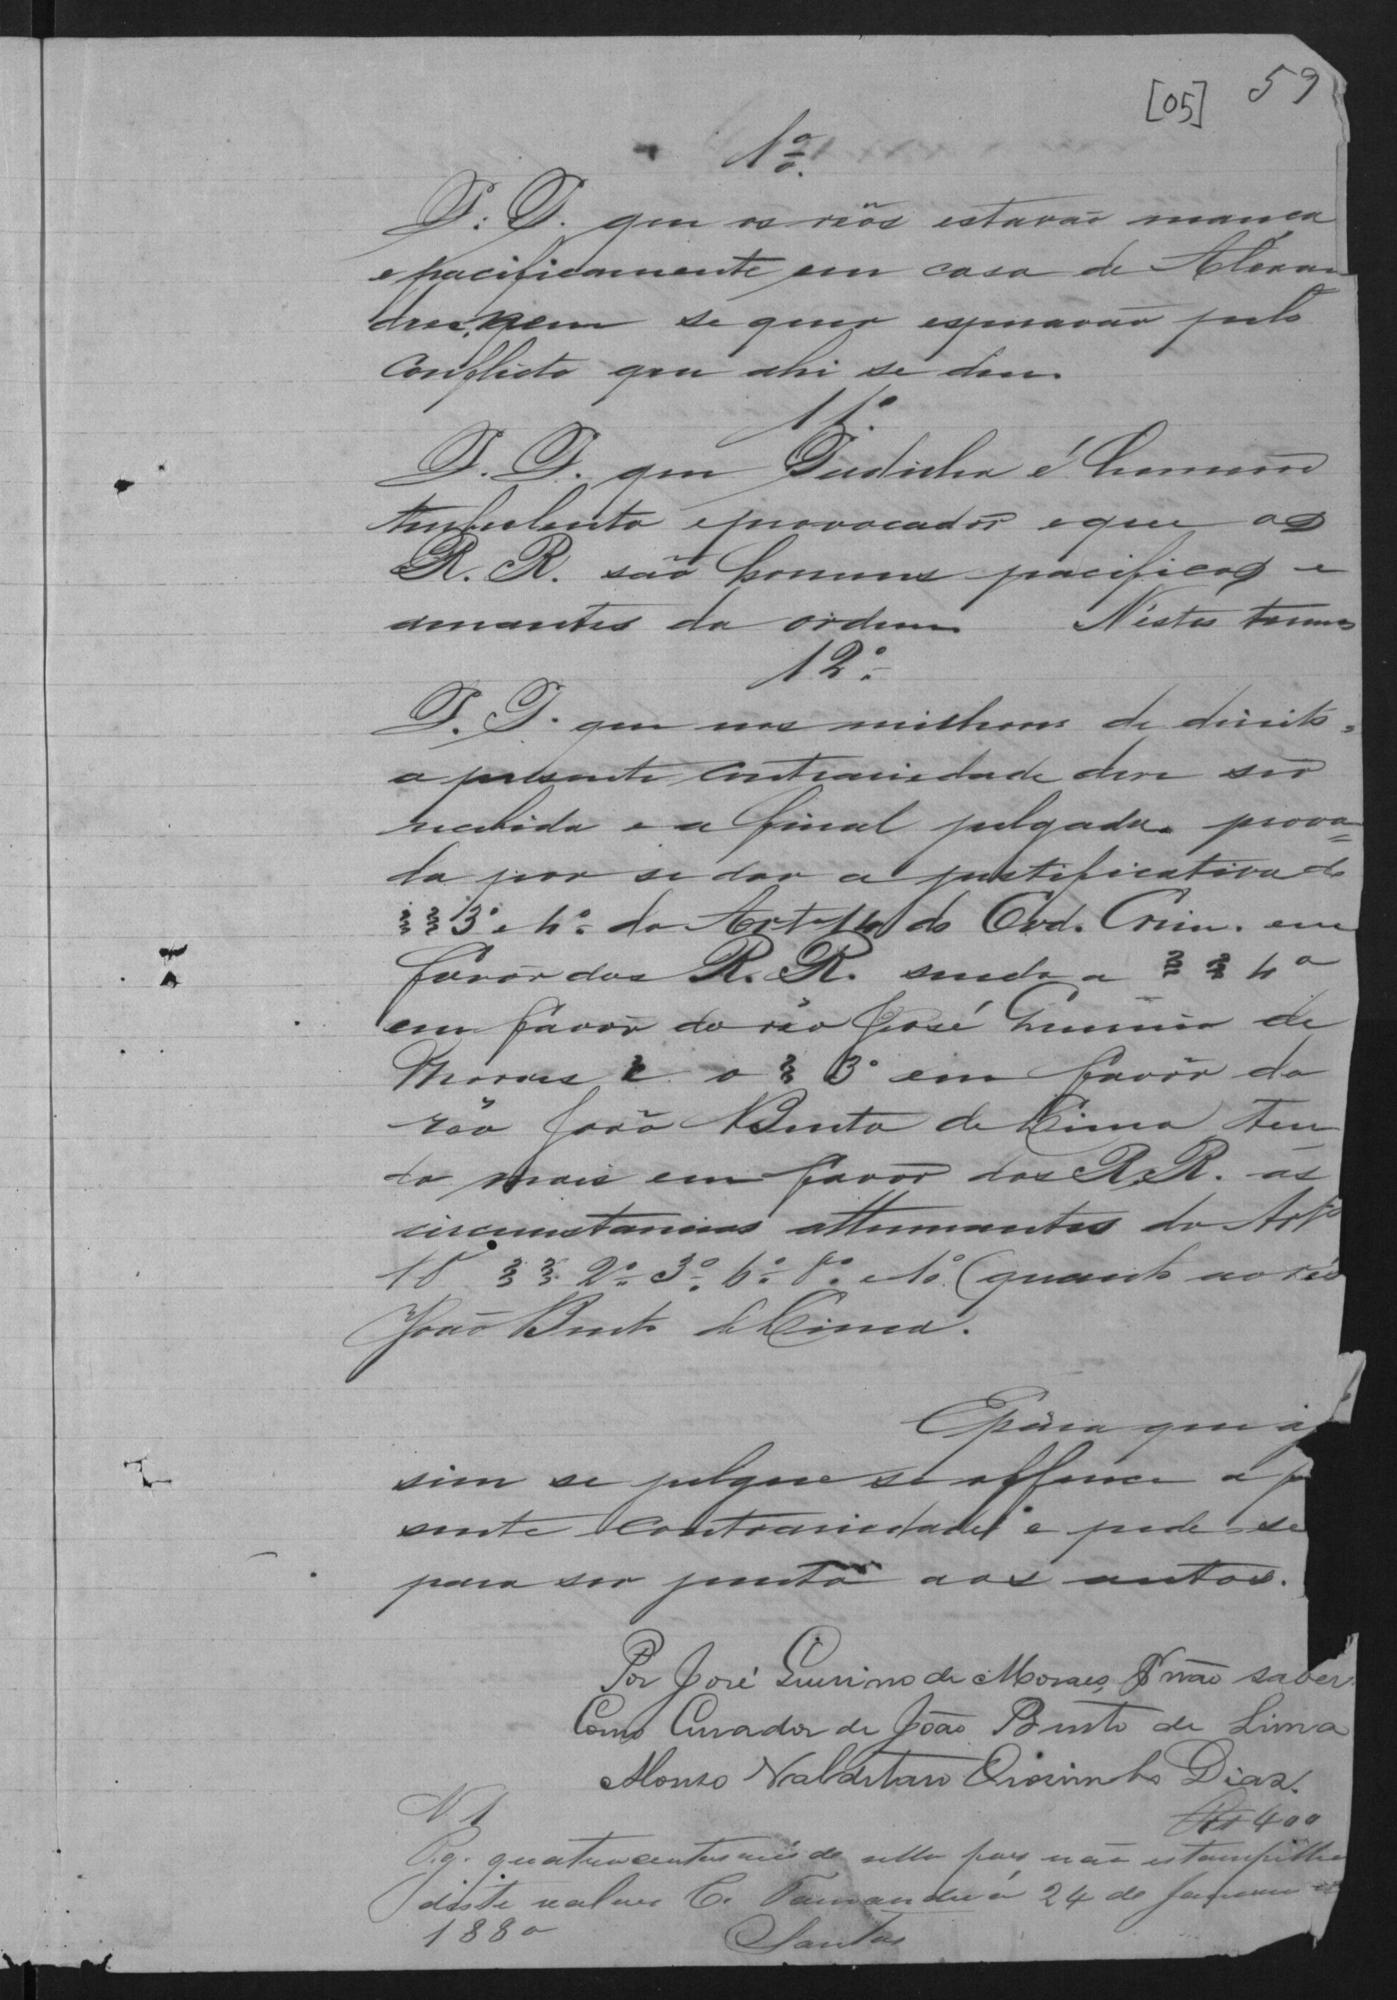 [05] 59
10º
P. P. que os réos estavão mança
e pacificamente em casa de Alexan
dre, nem se quer esperavão pelo
conflicto que ahi se deu.
11º
P. P. que é homem
turbulento e provocador e que os
R. R. são homens pacificos e
amantes da ordem Néstes termos
12º
P. P. que nos milhores de direito
a presente contrariedade deve ser
recebida e a final julgada prova=
da por se dar a justificativa do
§§ 3º e 4º do Art 14 do Cod. Crim. em
favor dos R. R. sendo a §§ 4º
em favor do réo José Guirino de
Moraes e o § 3º em favor do
réo João Bento de Lima ten
do mais em favor dos R. R. as
circumstancias attenuantes do Artº
18 §§ 2º 3º 6º 8º e 10º (quanto ao réo
João Bento de Lima.
E para que as
sim se julgue se offerece a p
sente contrariedade e pede-se
para ser junta aos autos.
Por José Guirino de Moraes, não saber
Como Curador de João Bento de Lima
Dias.
N 1 Rs 400
Pg. quatrocentos réis de sello por não estampilha
deste valor C. Tamanduá 24 de Janeiro de
1880 Santos